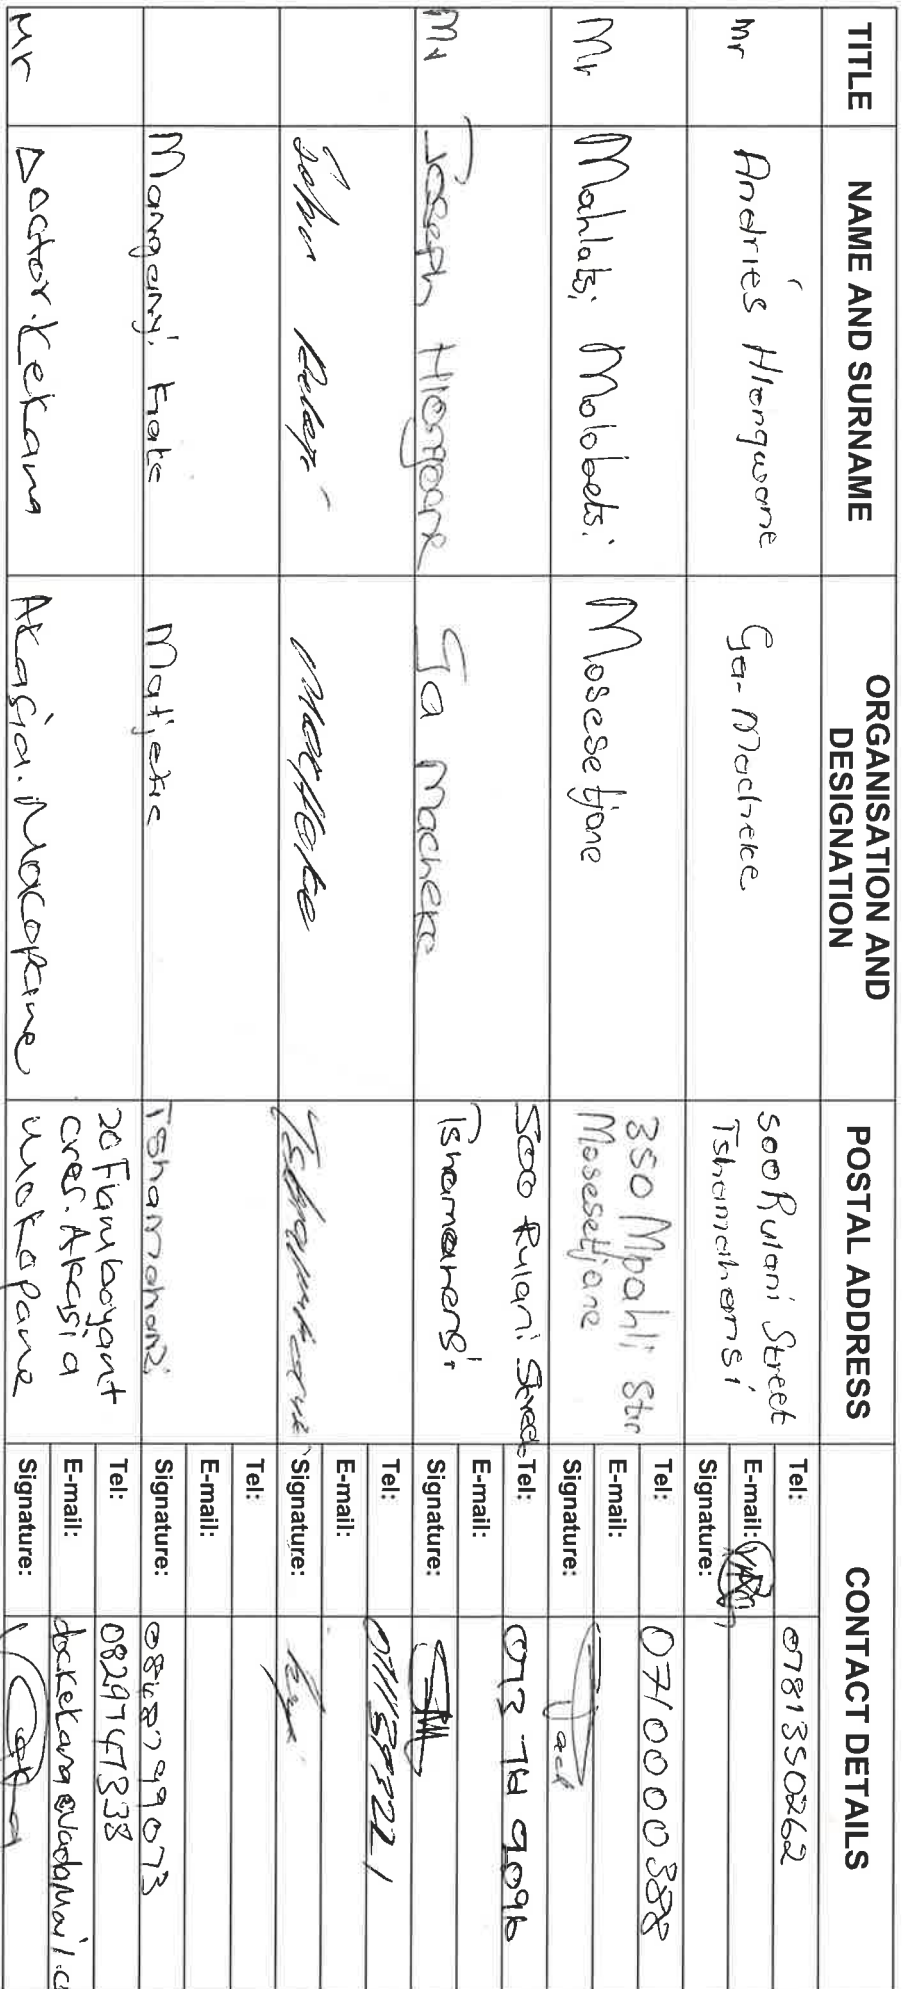 TITLE
NAME AND SURNAME
ORGANISATION AND
DESIGNATION
POSTAL ADDRESS
CONTACT DETAILS
Mr
Andries Hlongwane
Ga-Macheke
500 Rulani Street
Tshamahansi
Tel: 0781350262
E-mail:
Signature:
Mr
Mahlatsi Molobetsi
Mosesetjane
350 Mpahli Str
Mosesetjane
Tel: 0710000388
E-mail:
Signature:
Mr
Joseph Hlongoane
Ga Macheke
500 Rulani Street
Tel: 073 714 9096
E-mail:
Signature:
John
Tel: 0711389221
E-mail:
Signature:
Manganyi
Tshamahanzi
Tel:
E-mail:
Signature: 0848799073
Mr
Doctor. Kekana
Akasia. Mocopane
20 Flamboyant
cres. Akasia
Mokopane
Tel: 0829747338
E-mail:
Signature: